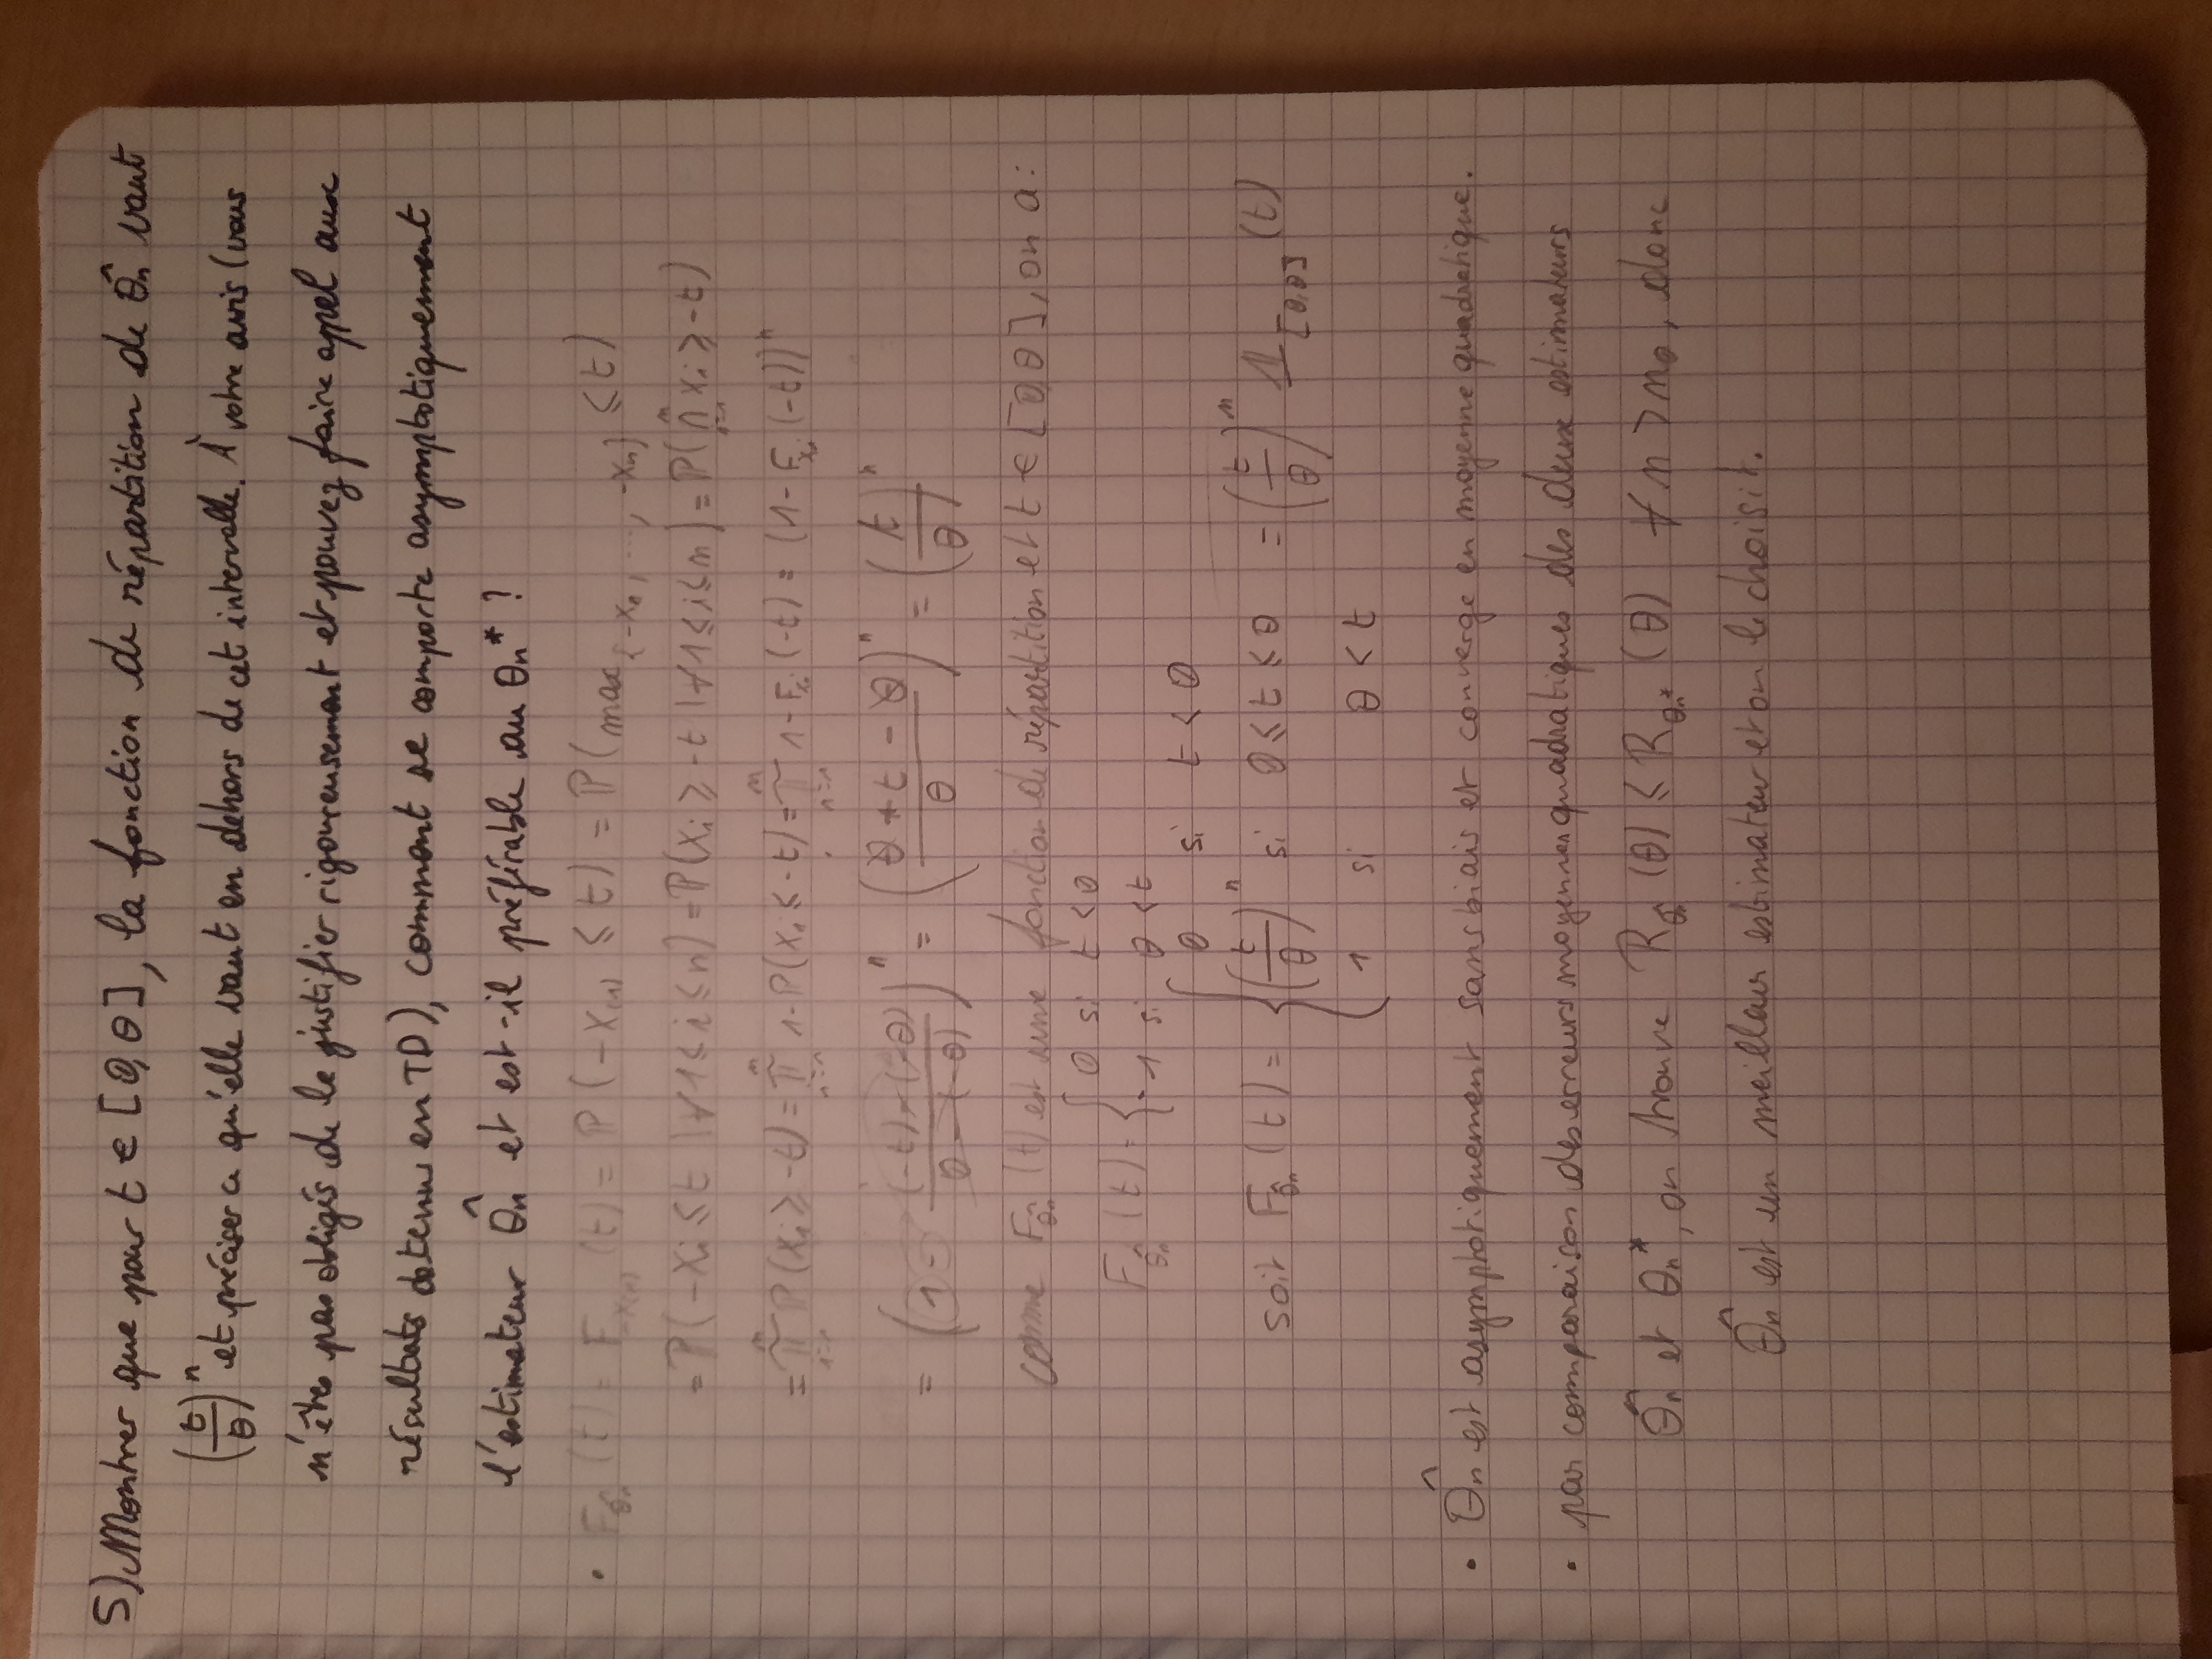 5) Montrer que pour t ∈ [0,θ], la fonction de répartition de θ̂n vaut
(t/θ)^n et préciser ce qu'elle vaut en dehors de cet intervalle. À votre avis (vous
n'êtes pas obligés de le justifier rigoureusement et pouvez faire appel aux
résultats obtenus en TD), comment se comporte asymptotiquement
l'estimateur θ̂n et est-il préférable au θn* ?
• F_θ̂n (t) = F_-X(1) (t) = ℙ(-X(1) ≤ t) = ℙ(max{-X1, ..., -Xn} ≤ t)
= ℙ(-Xi ≤ t | ∀ 1 ≤ i ≤ n) = ℙ(Xi ≥ -t | ∀ 1 ≤ i ≤ n) = ℙ(⋂_{i=1}^n Xi ≥ -t)
= ∏_{i=1}^n ℙ(Xi ≥ -t) = ∏_{i=1}^n 1 - ℙ(Xi ≤ -t) = ∏_{i=1}^n 1 - F_Xi (-t) = (1 - F_Xi (-t))^n
= (1 - ((-t) - (-θ))/(0 - (-θ)))^n = ((θ + t - θ)/θ)^n = (t/θ)^n
comme F_θ̂n (t) est une fonction de répartition et t ∈ [0,θ], on a :
F_θ̂n (t) = { 0 si t < 0
1 si θ < t
0 si t < 0
soit F_θ̂n (t) = { (t/θ)^n si 0 ≤ t ≤ θ = (t/θ)^n 𝟙_[0,θ] (t)
1 si θ < t
• θ̂n est asymptotiquement sans biais et converge en moyenne quadratique.
• par comparaison des erreurs moyennes quadratiques des deux estimateurs
θ̂n et θn*, on trouve R_θ̂n (θ) ≤ R_θn* (θ) ∀ n > n0, donc
θ̂n est un meilleur estimateur et on le choisit.